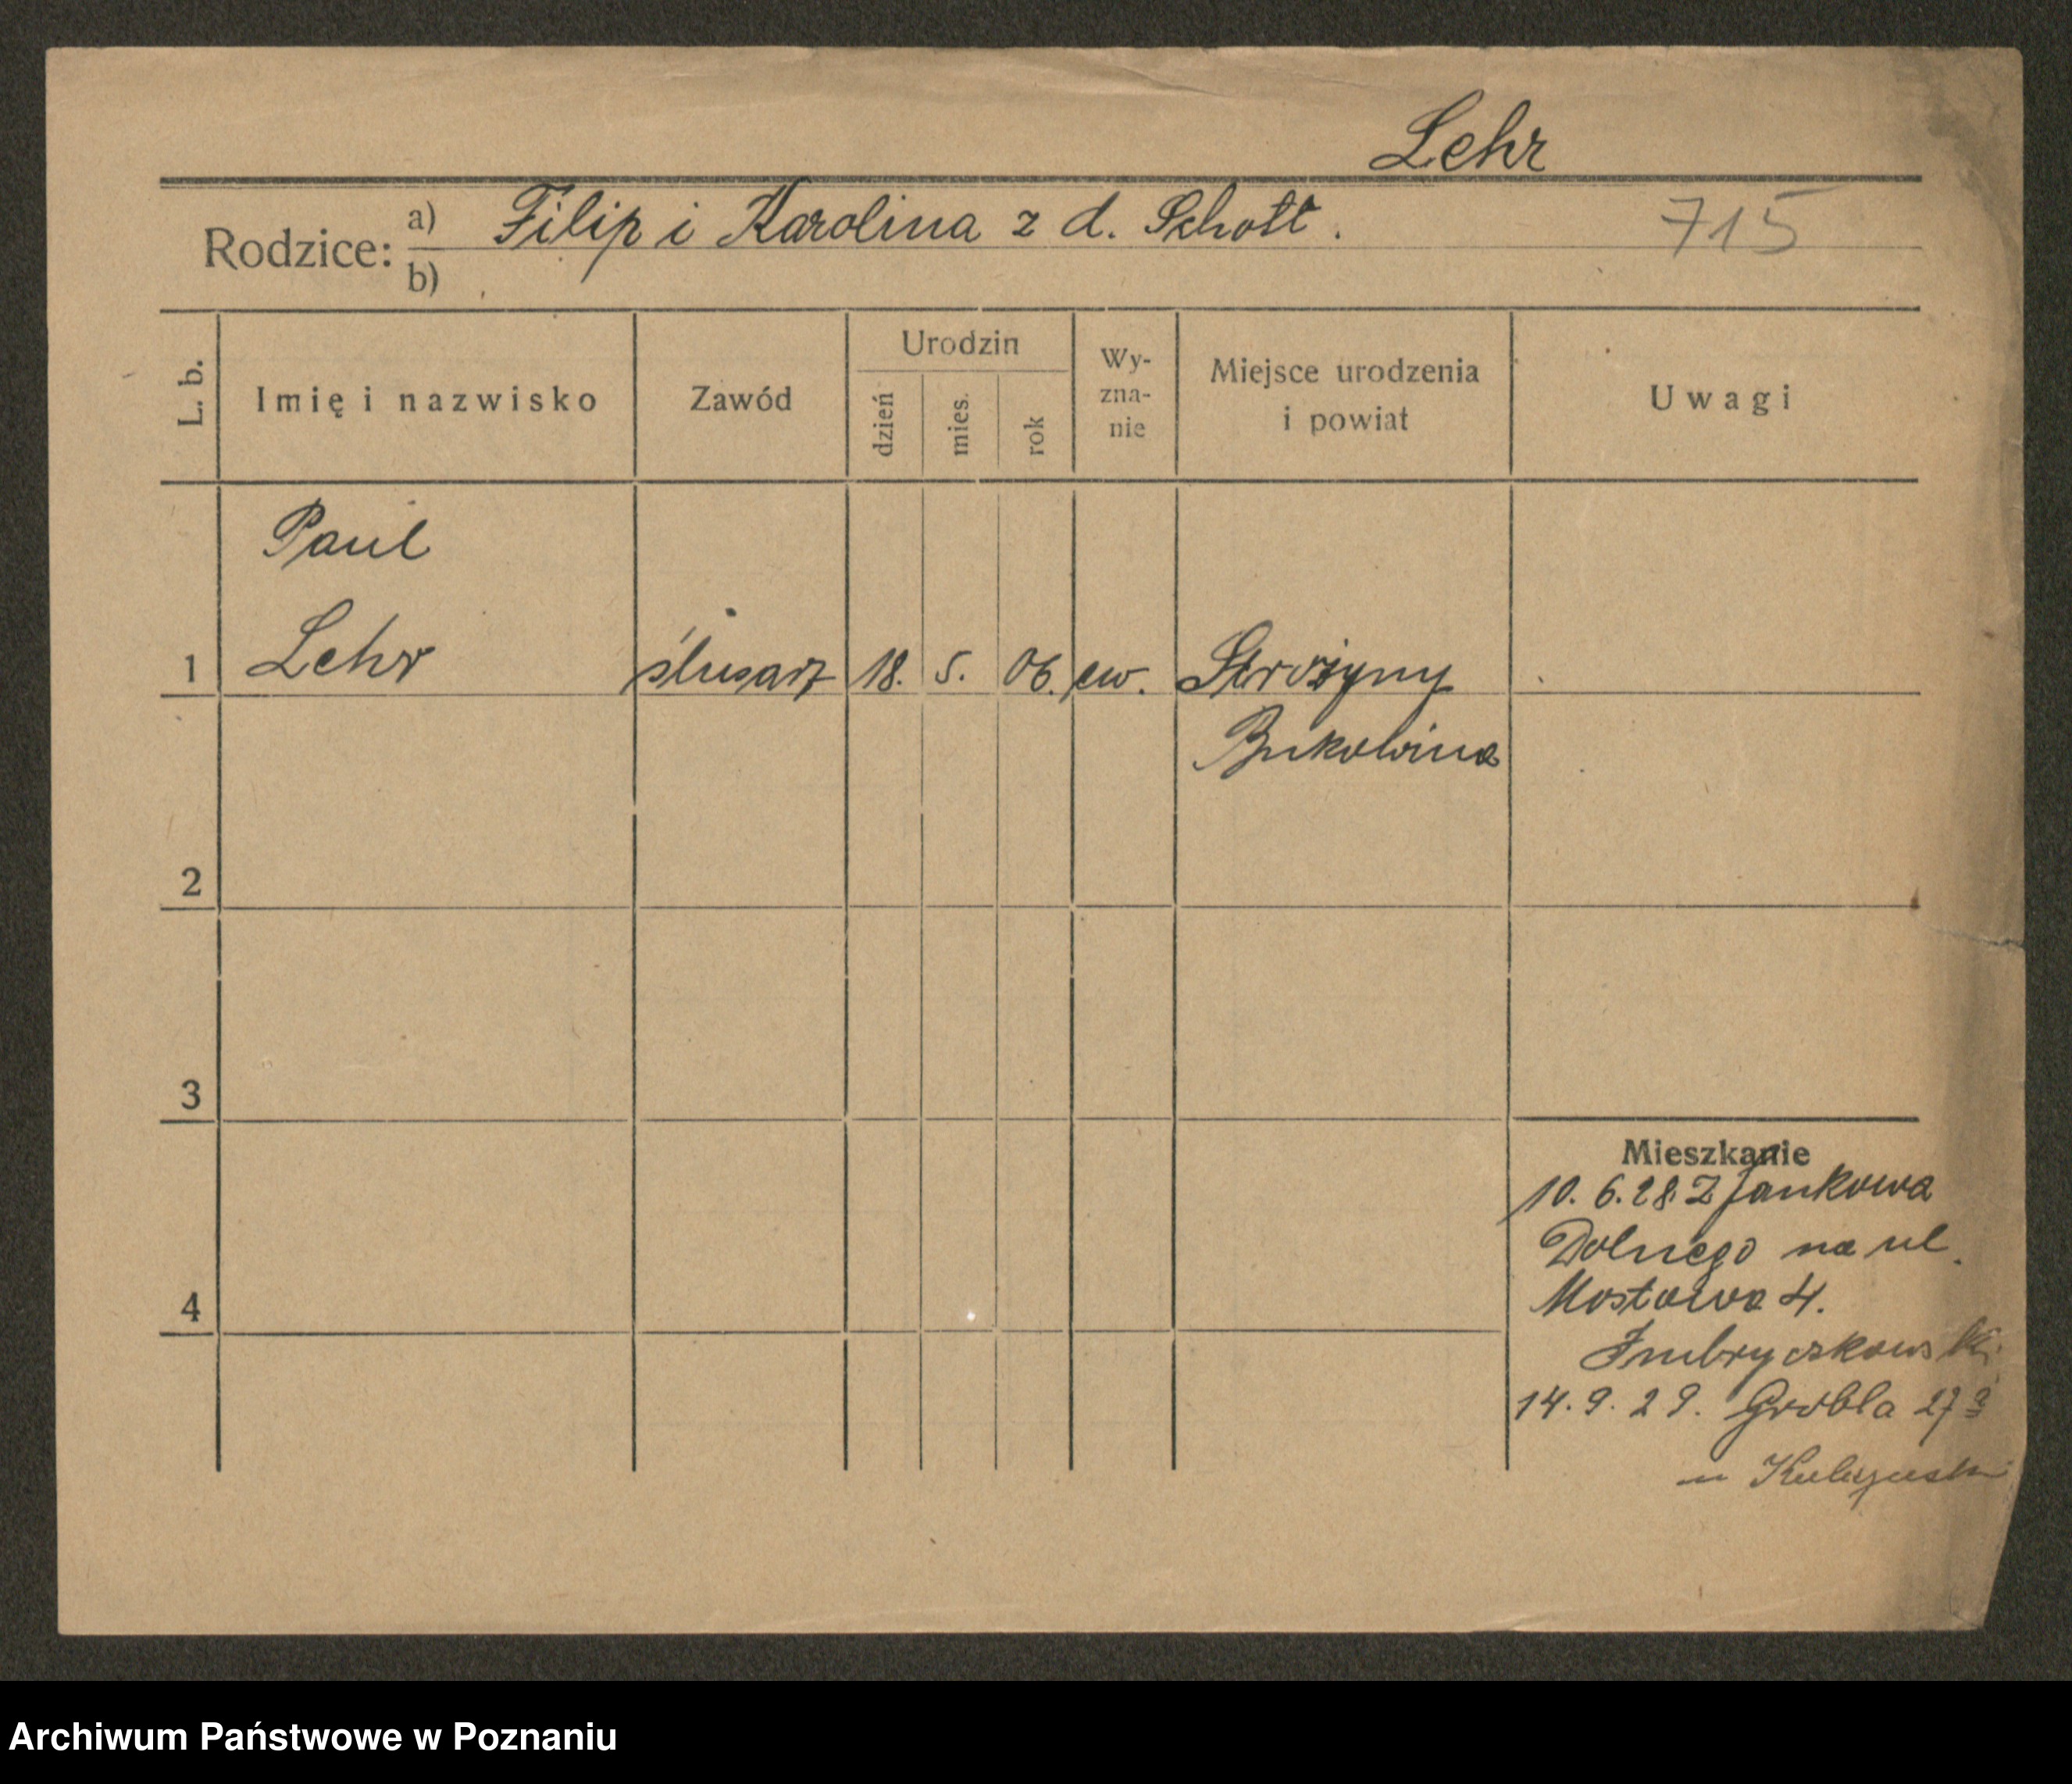 Lehr
Rodzice: a) Filip i Karolina z d. Schott.
715
b)
L. b.
Imię i nazwisko
Zawód
Urodzin
dzień
mies.
rok
Wy-
zna-
nie
Miejsce urodzenia
i powiat
Uwagi
Paul
1 Lehr ślusarz 18. 5. 06. ew. Strożyny
Bukowina
2
3
4
Mieszkanie
10. 6. 28. z Jankowa
Dolnego na ul.
Mostowa 4.
Imbryczkowski
14. 9. 29. Grobla 27
u
Archiwum Państwowe w Poznaniu